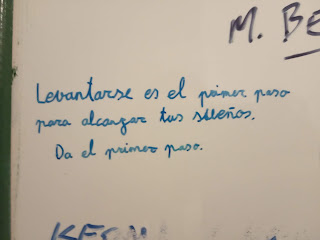 M. BE
Levantarse es el primer paso
para alcanzar tus sueños.
Da el primer paso.